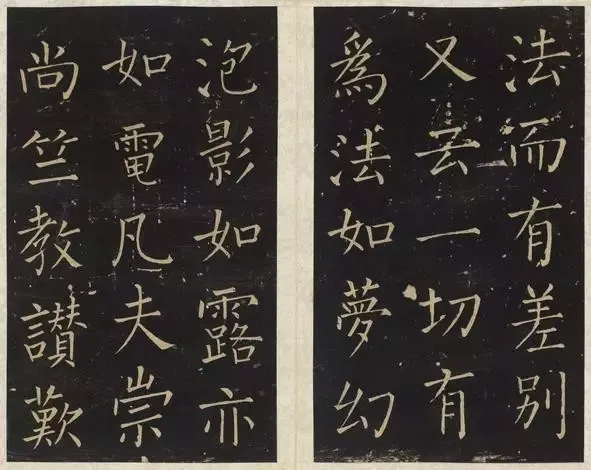 法而有差别
又云一切有
為法如夢幻
泡影如露亦
如電凡夫崇
尚竺教讃歎